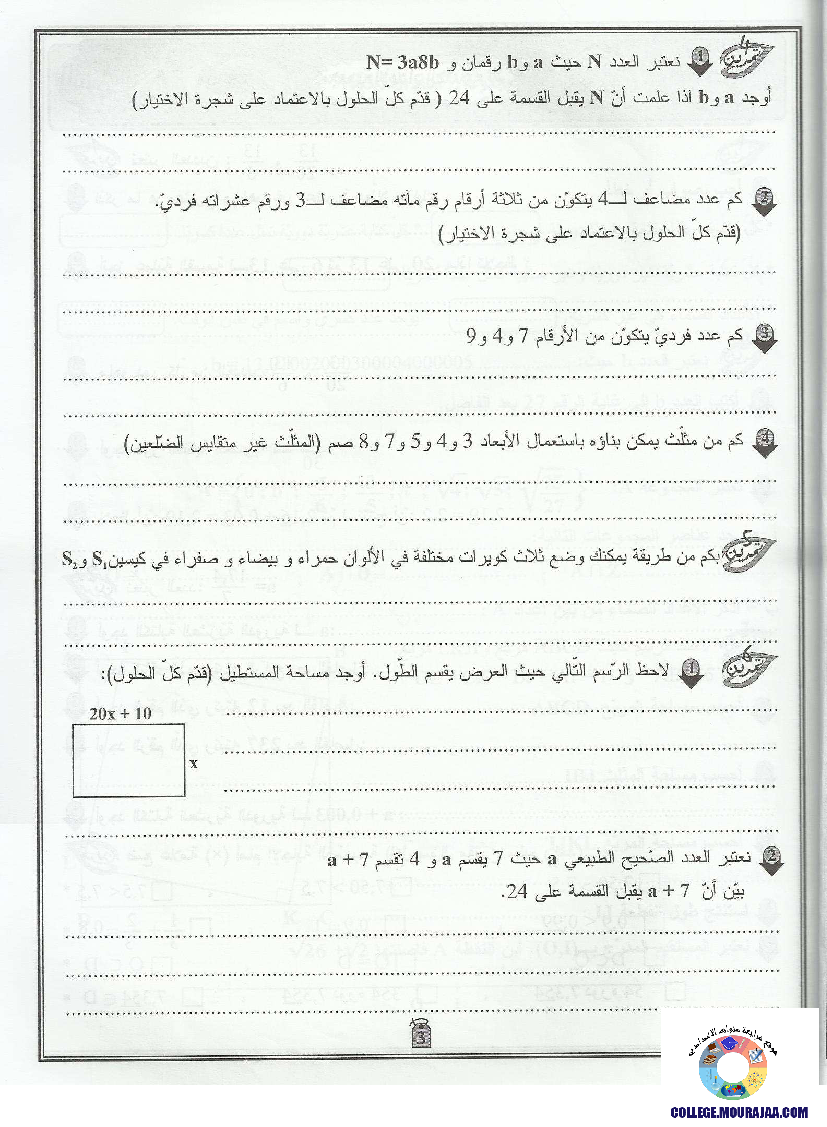 تمرين 4
1 نعتبر العدد N حيث a وb رقمان و N= 3a8b
أوجد a وb اذا علمت أنّ N يقبل القسمة على 24 ( قدّم كلّ الحلول بالاعتماد على شجرة الاختيار)
2 كم عدد مضاعف لـ4 يتكوّن من ثلاثة أرقام رقم مآته مضاعف لـ3 ورقم عشراته فرديّ.
(قدّم كلّ الحلول بالاعتماد على شجرة الاختيار)
3 كم عدد فرديّ يتكوّن من الأرقام 7 و4 و9
4 كم من مثلّث يمكن بناؤه باستعمال الأبعاد 3 و4 و5 و7 و8 صم (المثلّث غير متقايس الضلعين)
تمرين 5
بكم من طريقة يمكنك وضع ثلاث كويرات مختلفة في الألوان حمراء و بيضاء و صفراء في كيسين S₁ وS₂
تمرين 6
1 لاحظ الرّسم التّالي حيث العرض يقسم الطّول. أوجد مساحة المستطيل (قدّم كلّ الحلول):
20x + 10
x
2 نعتبر العدد الصّحيح الطبيعي a حيث 7 يقسم a و 4 تقسم a + 7
بيّن أنّ a + 7 يقبل القسمة على 24.
3
موقع مراجعة
COLLEGE.MOURAJAA.COM